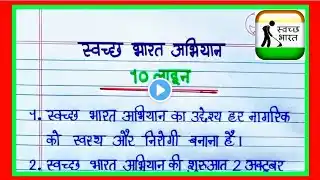 स्वच्छ भारत अभियान
स्वच्छ
भारत
10 लाइन
१. स्वच्छ भारत अभियान का उद्देश्य हर नागरिक
को स्वस्थ और निरोगी बनाना है।
2. स्वच्छ भारत अभियान की शुरुआत 2 अक्टूबर